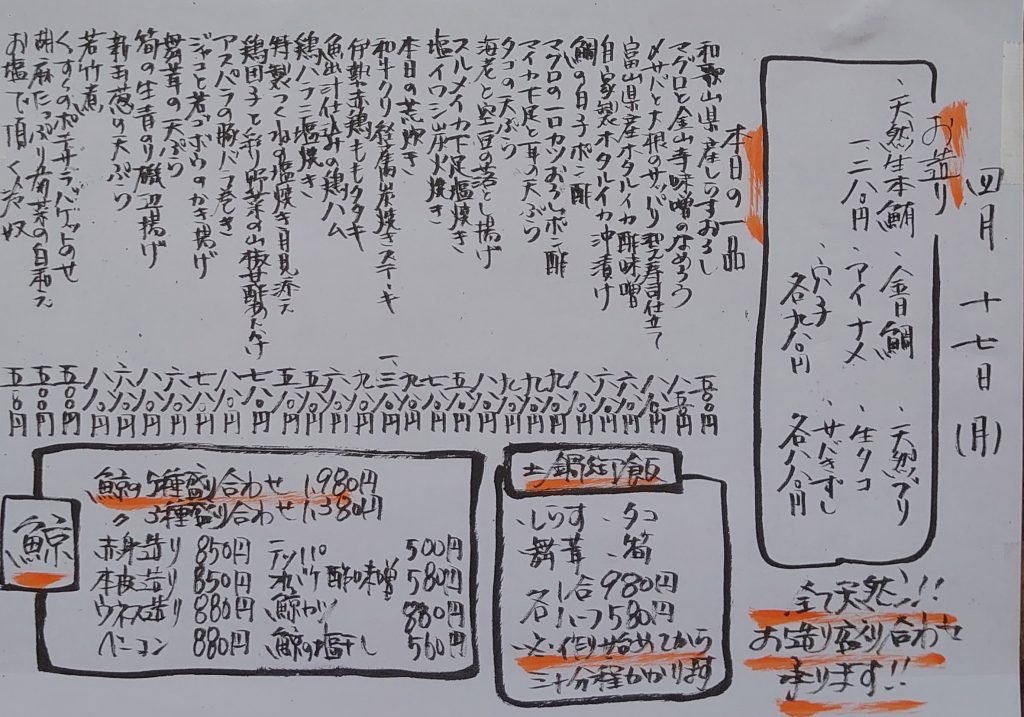 四月十七日(月)
お造り
・天然生本鮪
一二八〇円
・金目鯛
・アイナメ
・穴子
各九八〇円
・天然ブリ
・生タコ
・サバきずし
各八八〇円
全て天然!!
お造り盛り合わせ
承ります!!
本日の一品
和歌山県産しらすおろし 五〇〇円
マグロと金山寺味噌のなめろう 八五〇円
〆サバと大根のサッパリ 押寿司仕立て 八八〇円
富山県産ホタルイカ酢味噌 六八〇円
自家製ホタルイカ沖漬け 六八〇円
鯛の白子ポン酢 八八〇円
マグロの一口カツおろしポン酢 九八〇円
マイカ下足と耳の天ぷら
タコの天ぷら
海老と空豆の落とし揚げ
スルメイカ下足塩焼き
塩イワシ炭火焼き
本日の荒炊き
和牛クリ 炭焼きステーキ
伊勢赤鶏ももタタキ
魚出汁仕込みの鶏ハム
鶏ハラミ塩焼き
特製つくねの塩焼き 目見添え
鶏団子と彩り野菜の山椒甘酢あんかけ
アスパラの豚バラ巻き
ジャコと若ゴボウのかき揚げ
舞茸の天ぷら
筍の生青のり磯辺揚げ
新玉葱の天ぷら
若竹煮
くずしのポテサラバゲットのせ 五〇〇円
胡麻たっぷり菊菜の白和え 五〇〇円
お塩で頂く冷奴 五八〇円
土鍋御飯
・しらす ・タコ
・舞茸 ・筍
各 一合 980円
各 ハーフ 580円
※作り始めてから
三十分程かかります
鯨
鯨の5種盛り合わせ 1,980円
〃 3種盛り合わせ 1,380円
赤身造り 850円 テッパ 500円
本皮造り 850円 オバケ酢味噌 580円
ウネス造り 880円 鯨カツ 880円
ベーコン 880円 鯨の塩干し 560円